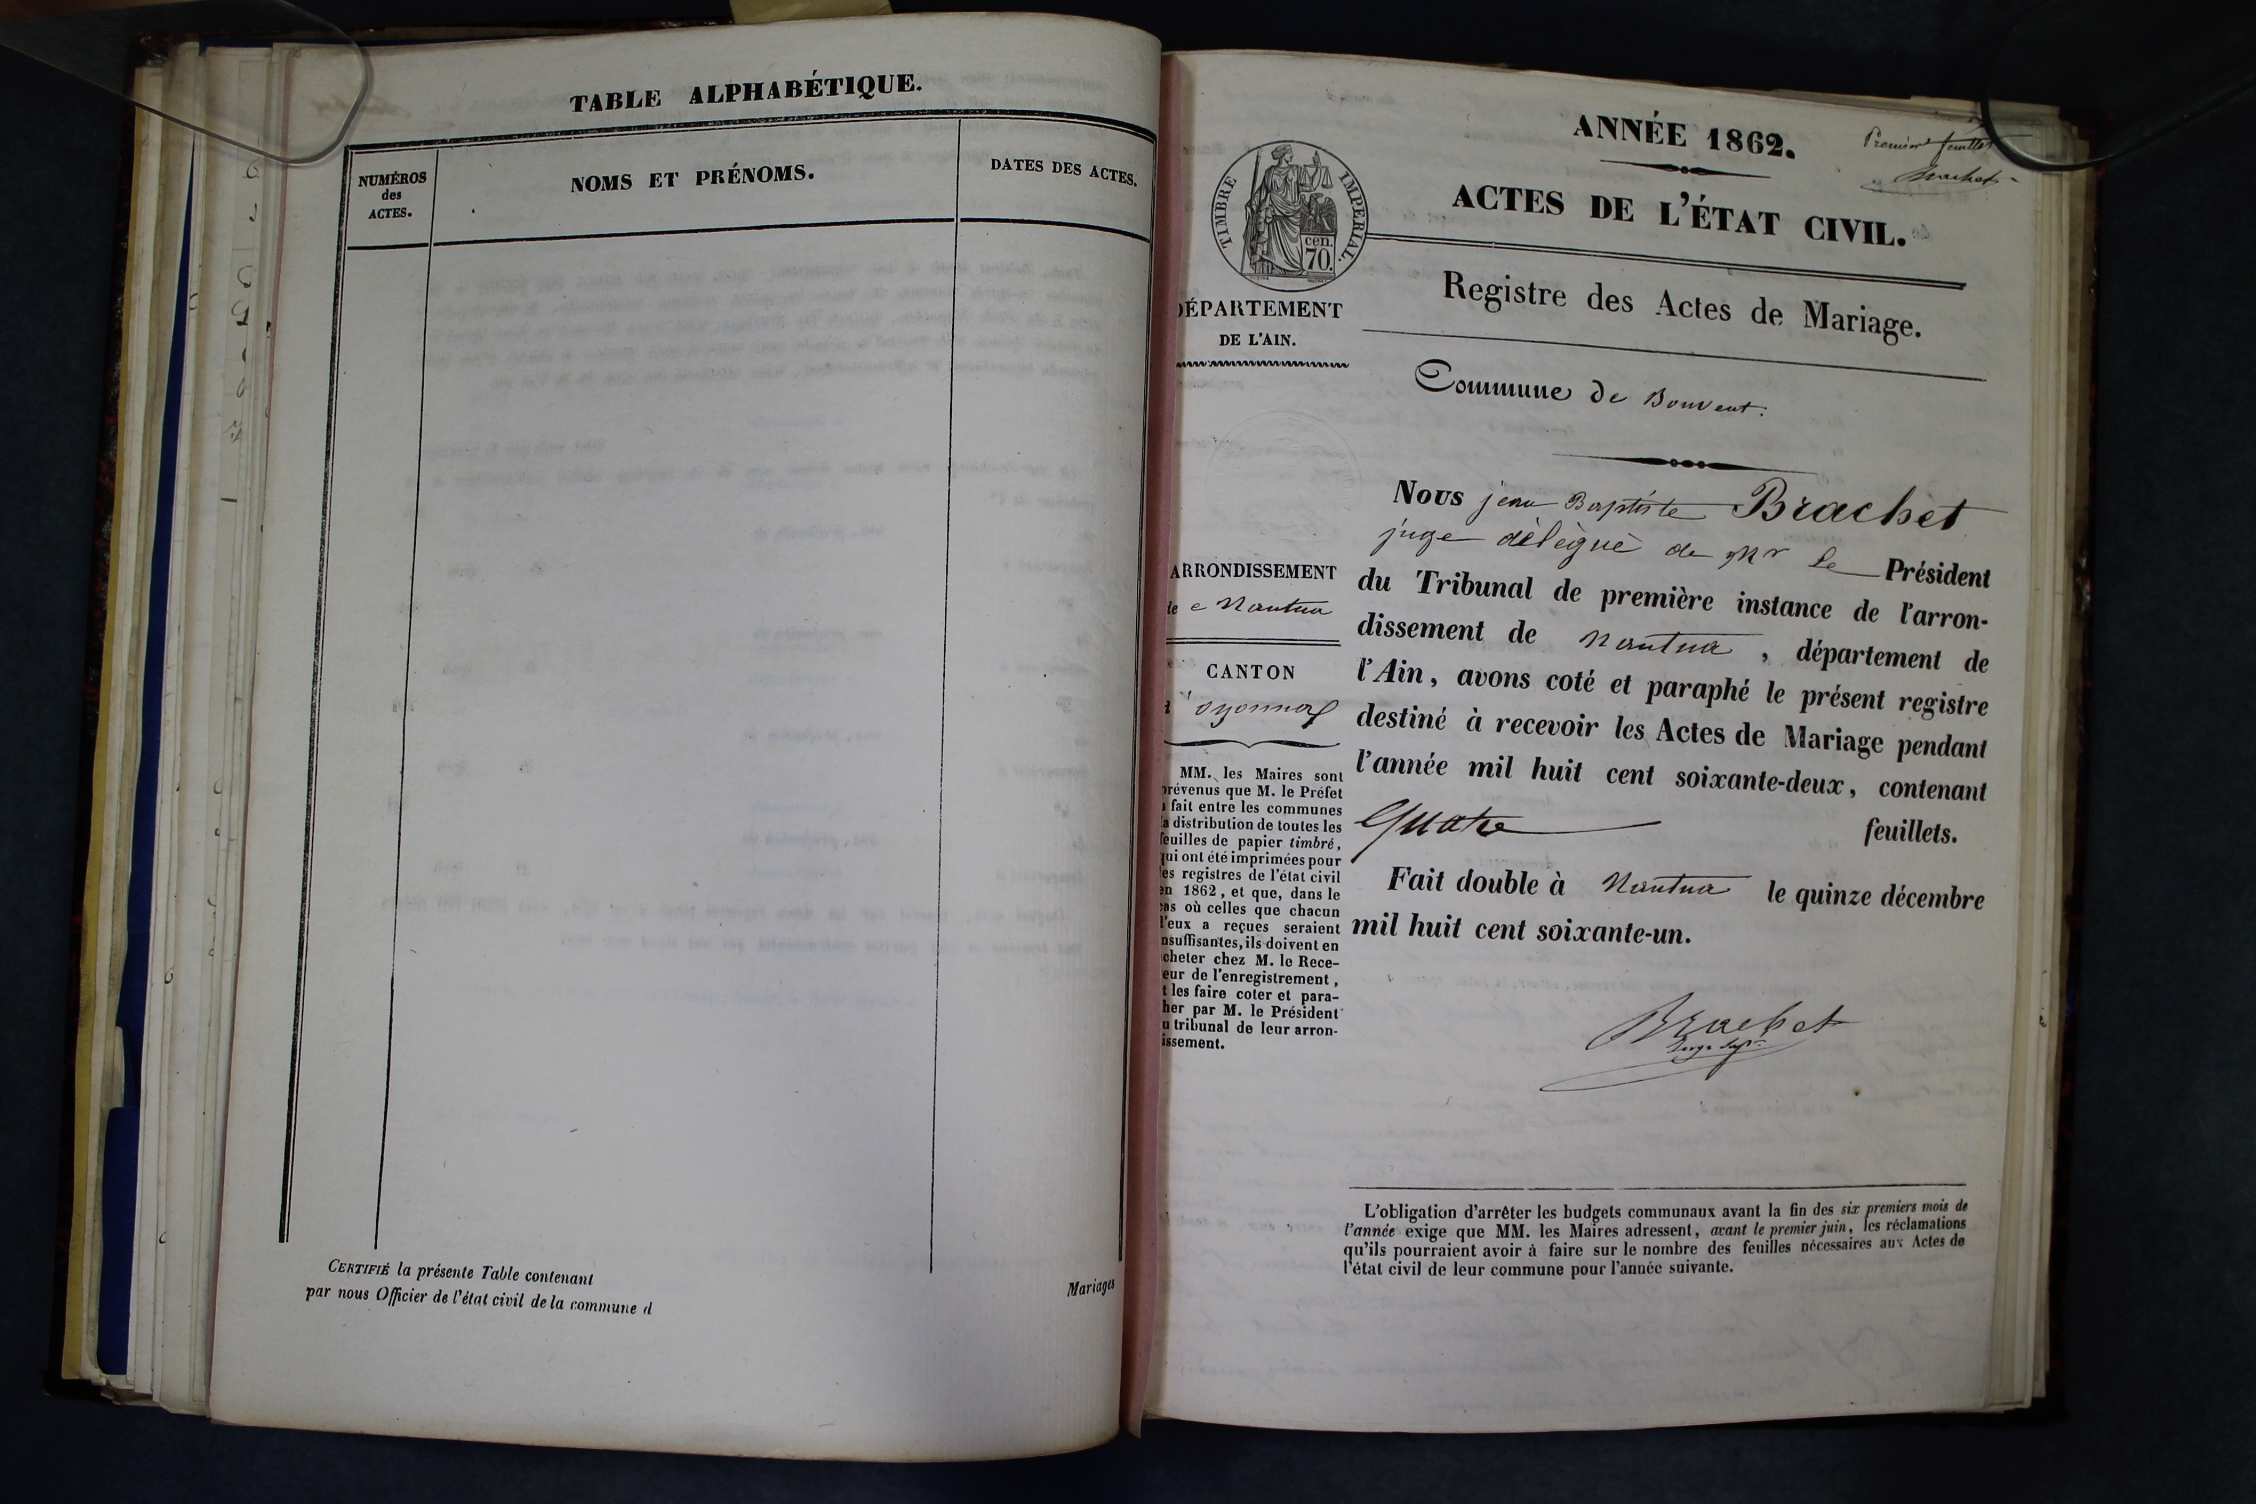 TABLE ALPHABÉTIQUE.
NUMÉROS
des
ACTES.
NOMS ET PRÉNOMS.
DATES DES ACTES.
CERTIFIÉ la présente Table contenant
par nous Officier de l'état civil de la commune d
Mariages
Premier feuillet
Brachet
ANNÉE 1862.
ACTES DE L'ÉTAT CIVIL.
TIMBRE IMPERIAL.
cen.
70.
DÉPARTEMENT
DE L'AIN.
Registre des Actes de Mariage.
Commune de Bouvent.
ARRONDISSEMENT
de Nantua
CANTON
d'oyonnax
MM. les Maires sont
prévenus que M. le Préfet
a fait entre les communes
la distribution de toutes les
feuilles de papier timbré,
qui ont été imprimées pour
les registres de l'état civil
en 1862, et que, dans le
cas où celles que chacun
d'eux a reçues seraient
insuffisantes, ils doivent en
acheter chez M. le Rece-
veur de l'enregistrement,
et les faire coter et para-
pher par M. le Président
du tribunal de leur arron-
dissement.
Nous jean Baptiste Brachet
juge délègué de Mr le Président
du Tribunal de première instance de l'arron-
dissement de Nantua, département de
l'Ain, avons coté et paraphé le présent registre
destiné à recevoir les Actes de Mariage pendant
l'année mil huit cent soixante-deux, contenant
Quatre feuillets.
Fait double à Nantua le quinze décembre
mil huit cent soixante-un.
Brachet
L'obligation d'arrêter les budgets communaux avant la fin des six premiers mois de
l'année exige que MM. les Maires adressent, avant le premier juin, les réclamations
qu'ils pourraient avoir à faire sur le nombre des feuilles nécessaires aux Actes de
l'état civil de leur commune pour l'année suivante.